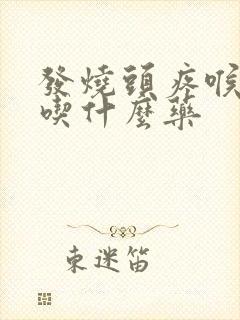 發燒頭疼喉
喫什麼藥
東迷笛